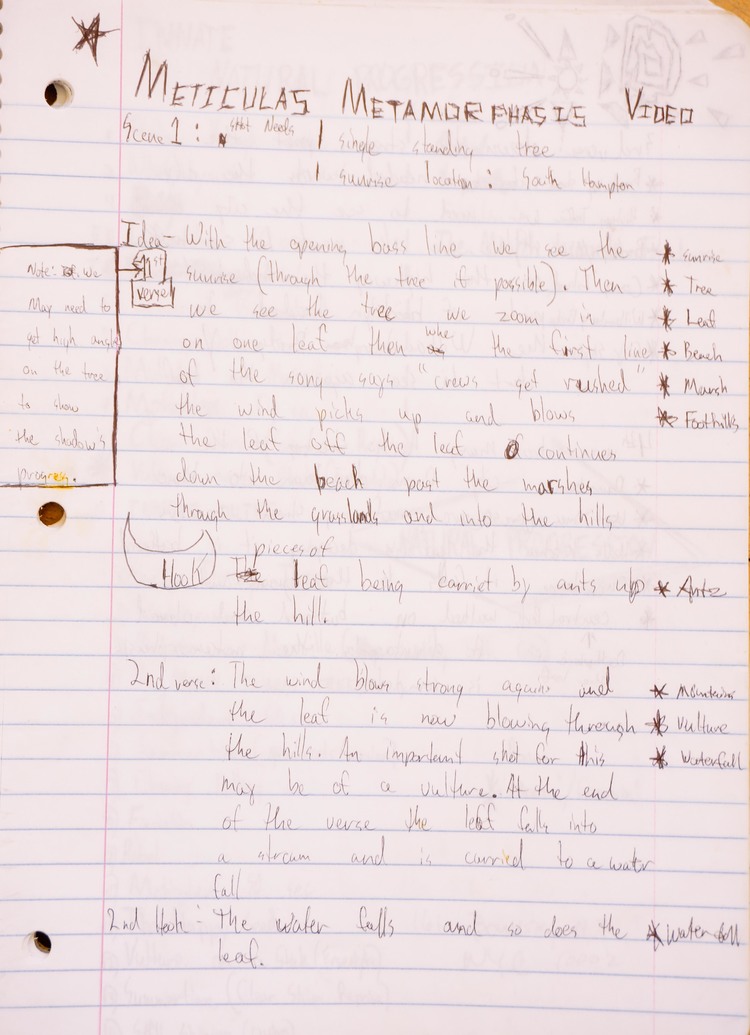 METICULAS METAMORPHASIS VIDEO
Scene 1: shot Needs | single standing tree
| sunrise location: South Hampton
Idea- With the opening bass line we see the * sunrise
1st verse
sunrise (through the tree if possible). Then * Tree
we see the tree we zoom in * Leaf
on one leaf then whe the first line * Beach
of the song says "crews get rushed" * Marsh
the wind picks up and blows * Foothills
the leaf off the leaf continues
down the beach past the marshes
through the grasslands and into the hills
Note: we
May need to
get high angle
on the tree
to show
the shadow's
progress.
Hook pieces of
leaf being carriet by ants up * Antz
the hill.
2nd verse: The wind blows strong again and * Mountains
the leaf is now blowing through * Vulture
the hills. An important shot for this * Waterfall
may be of a vulture. At the end
of the verse the leaf falls into
a stream and is carried to a water
fall
2nd Hook: The water falls and so does the * water fall
leaf.